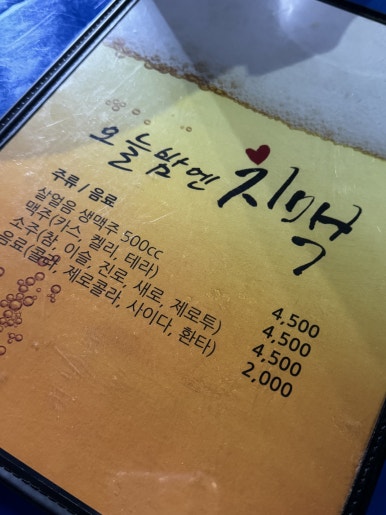 오늘밤엔 치맥
주류 / 음료
살얼음 생맥주 500cc 4,500
맥주(카스 켈리, 테라) 4,500
소주(참, 이슬, 진로, 새로, 제로투) 4,500
음료(콜라, 제로콜라, 사이다, 환타) 2,000